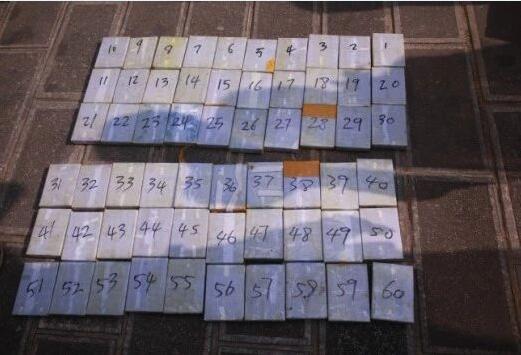 10 9 8 7 6 5 4 3 2 1
11 12 13 14 15 16 17 18 19 20
21 22 23 24 25 26 27 28 29 30
31 32 33 34 35 36 37 38 39 40
41 42 43 44 45 46 47 48 49 50
51 52 53 54 55 56 57 58 59 60